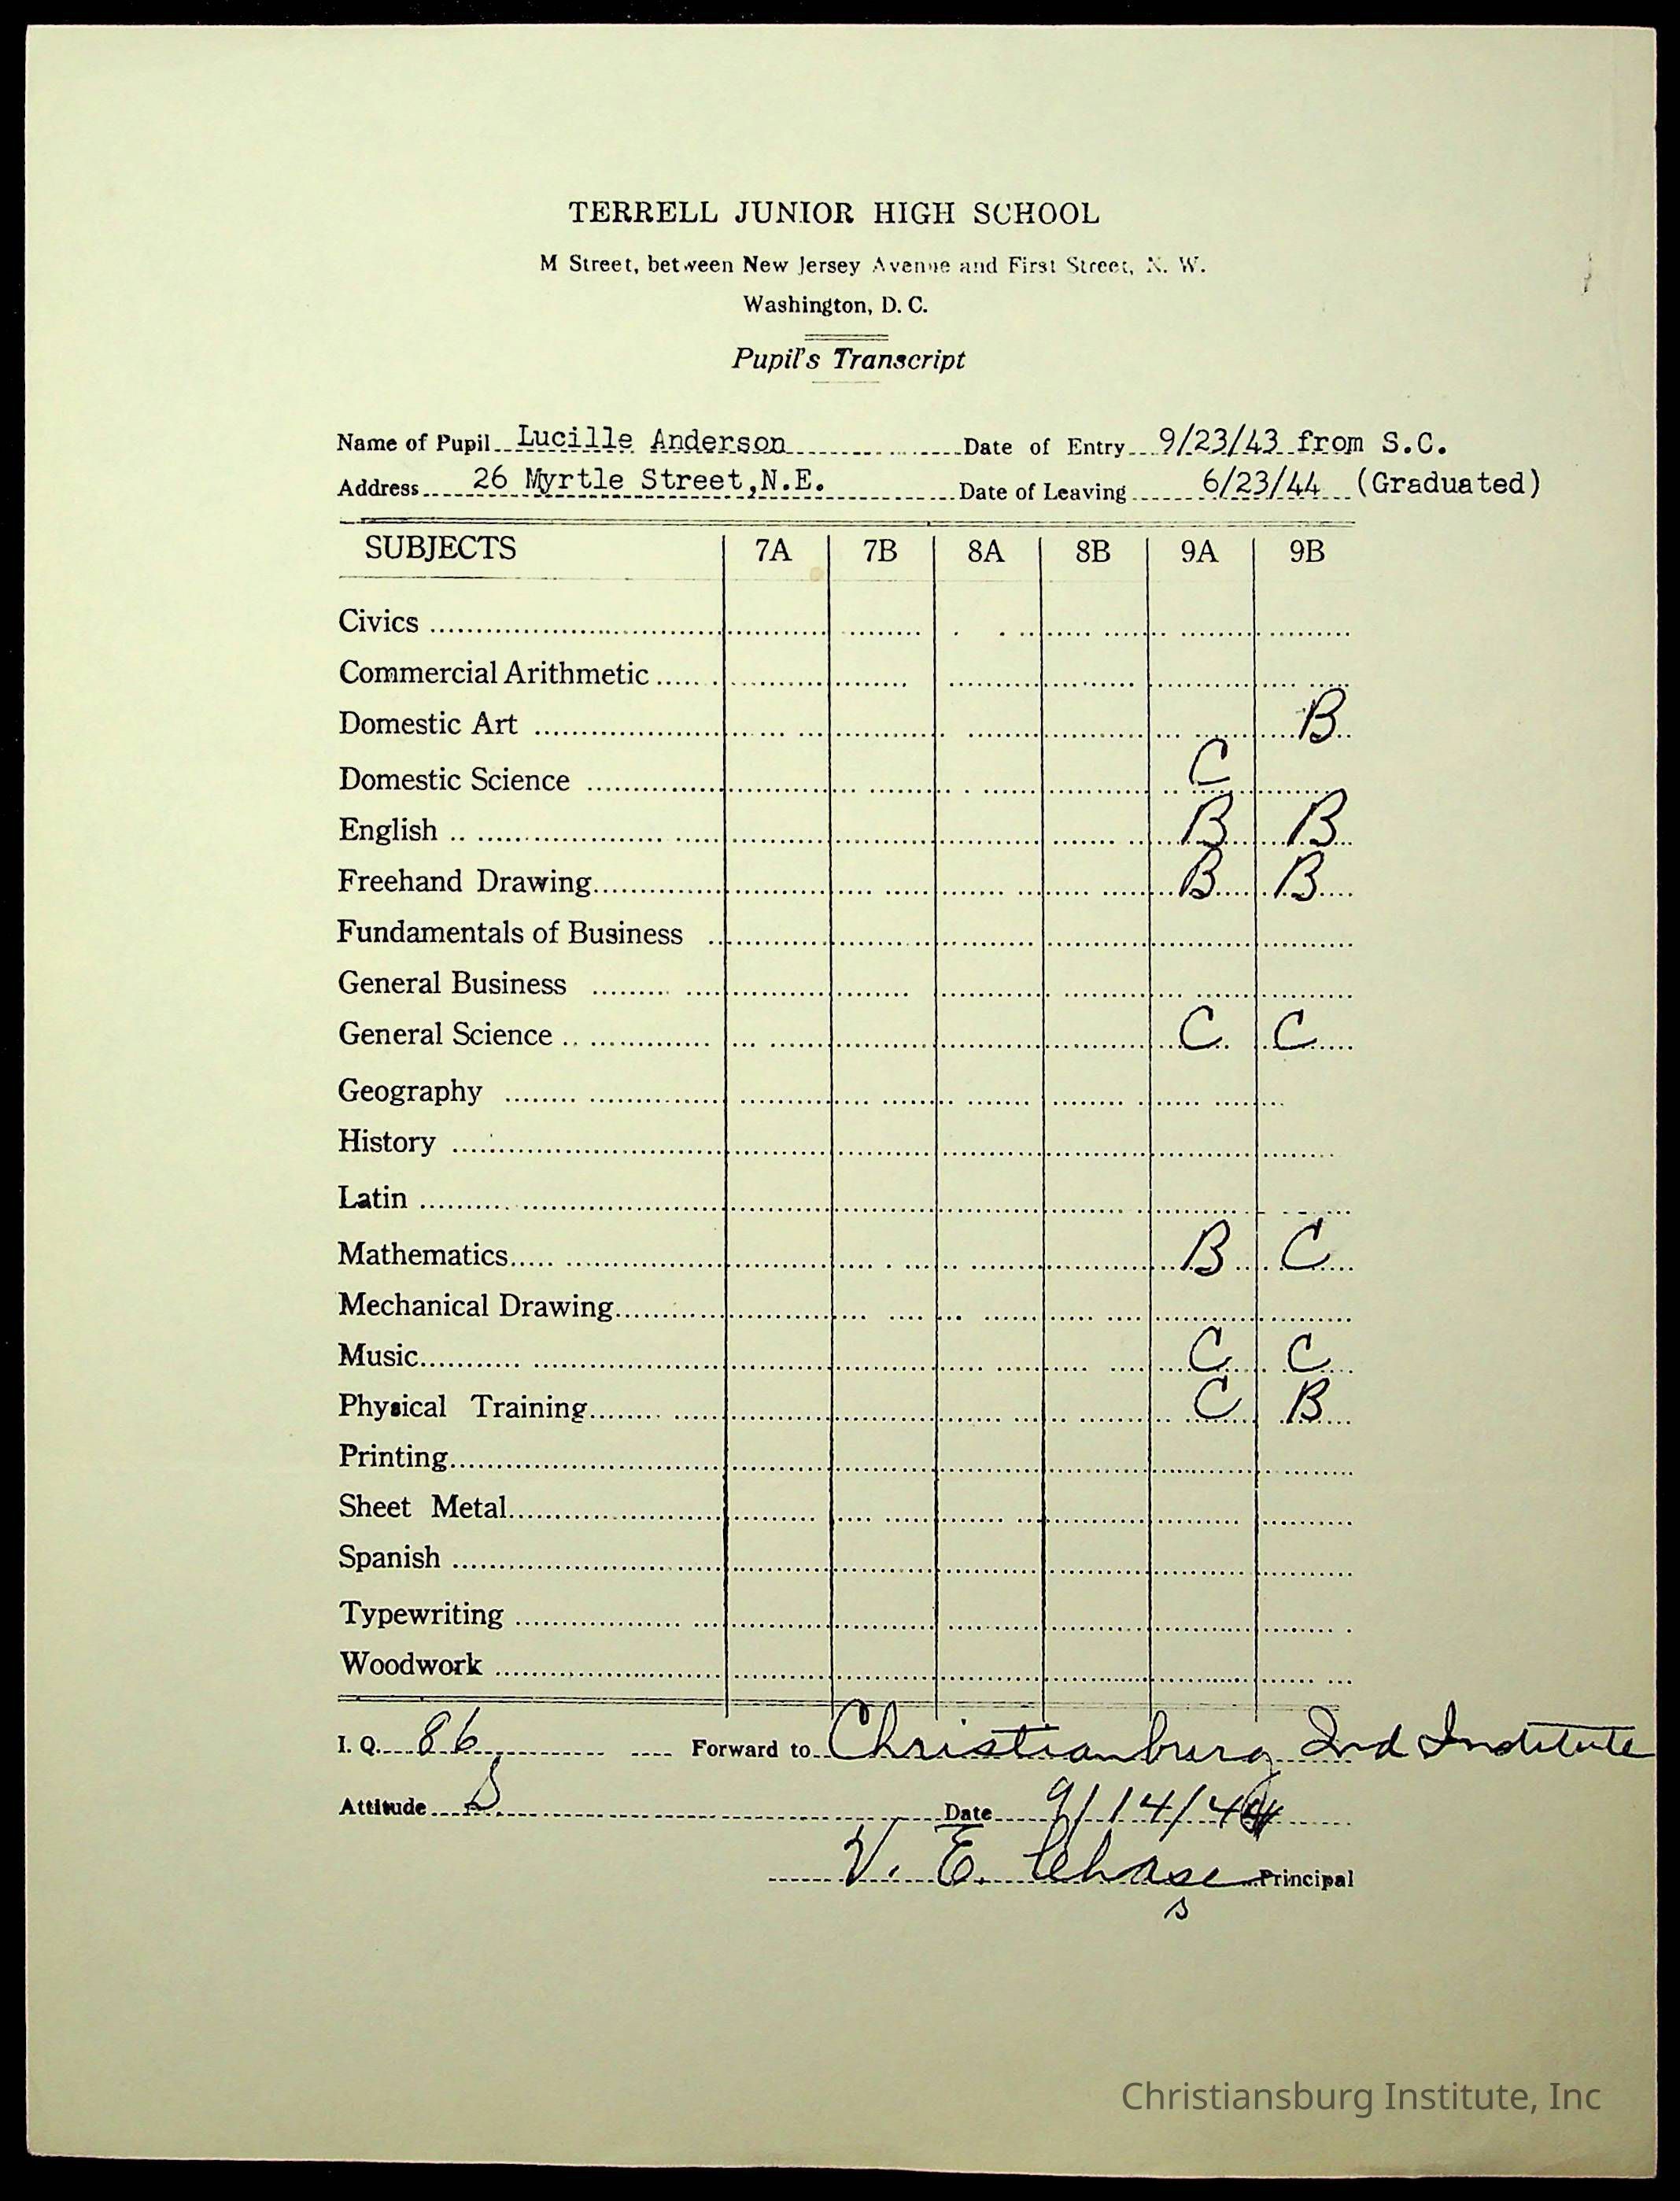 TERRELL JUNIOR HIGH SCHOOL
M Street, between New Jersey Avenue and First Street, N. W.
Washington, D. C.
Pupil's Transcript
Name of Pupil Lucille Anderson Date of Entry 9/23/43 from S.C.
Address 26 Myrtle Street, N.E. Date of Leaving 6/23/44 (Graduated)
SUBJECTS 7A 7B 8A 8B 9A 9B
Civics
Commercial Arithmetic
Domestic Art B
Domestic Science C
English B B
Freehand Drawing B B
Fundamentals of Business
General Business
General Science C C
Geography
History
Latin
Mathematics B C
Mechanical Drawing
Music C C
Physical Training C B
Printing
Sheet Metal
Spanish
Typewriting
Woodwork
I. Q. 86 Forward to Christianburg Ind Institute
Attitude Date 9/14/44
V. E. Chase Principal
s
Christiansburg Institute, Inc